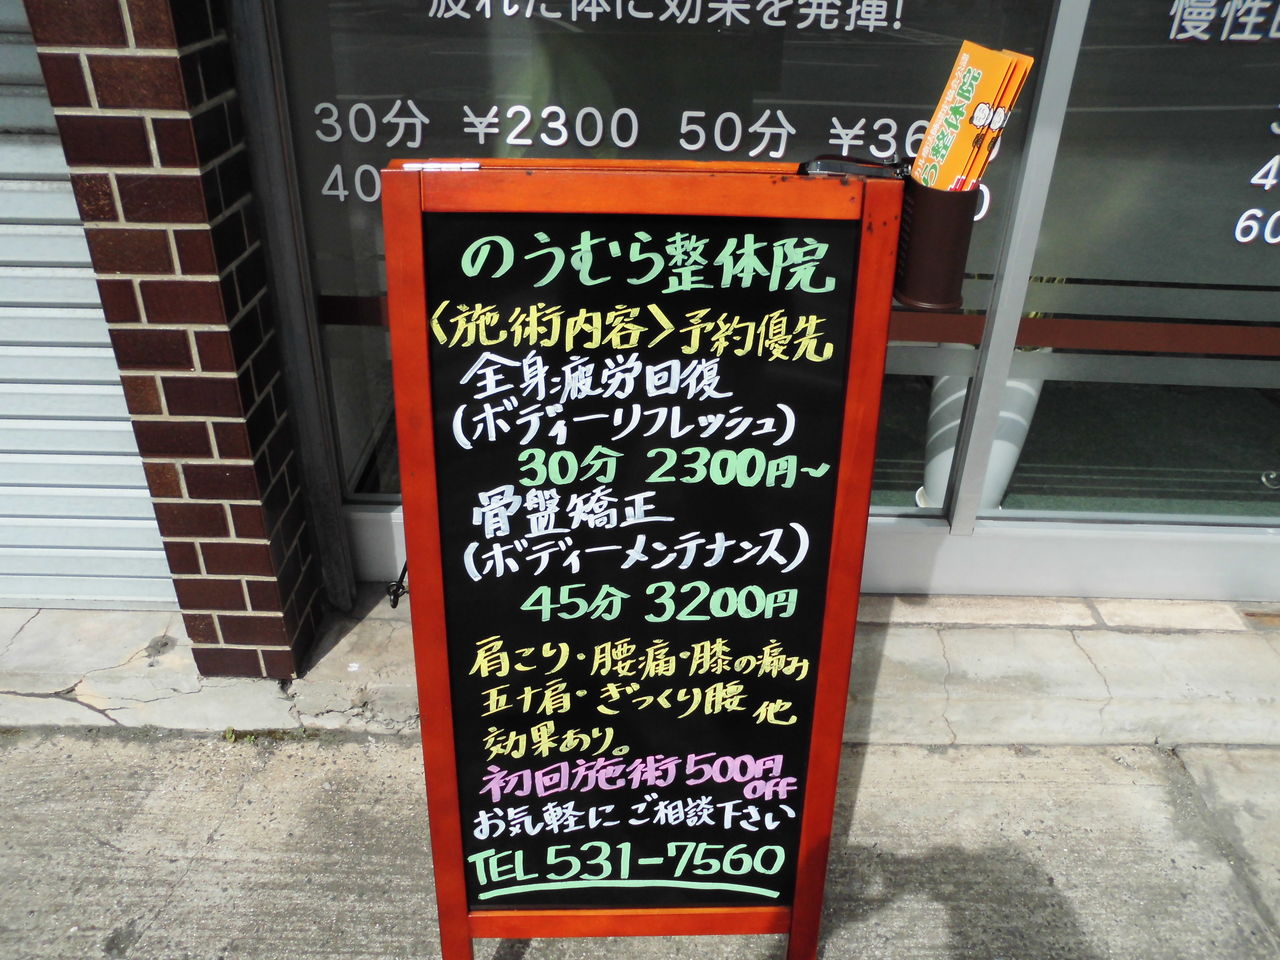 疲れた体に効果を発揮!
慢性
30分 ¥2300 50分 ¥36
40
4
60
整体院
のうむら整体院
〈施術内容〉予約優先
全身疲労回復
(ボディーリフレッシュ)
30分 2300円~
骨盤矯正
(ボディーメンテナンス)
45分 3200円
肩こり・腰痛・膝の痛み
五十肩・ぎっくり腰 他
効果あり。
初回施術500円
OFF
お気軽にご相談下さい
TEL 531-7560